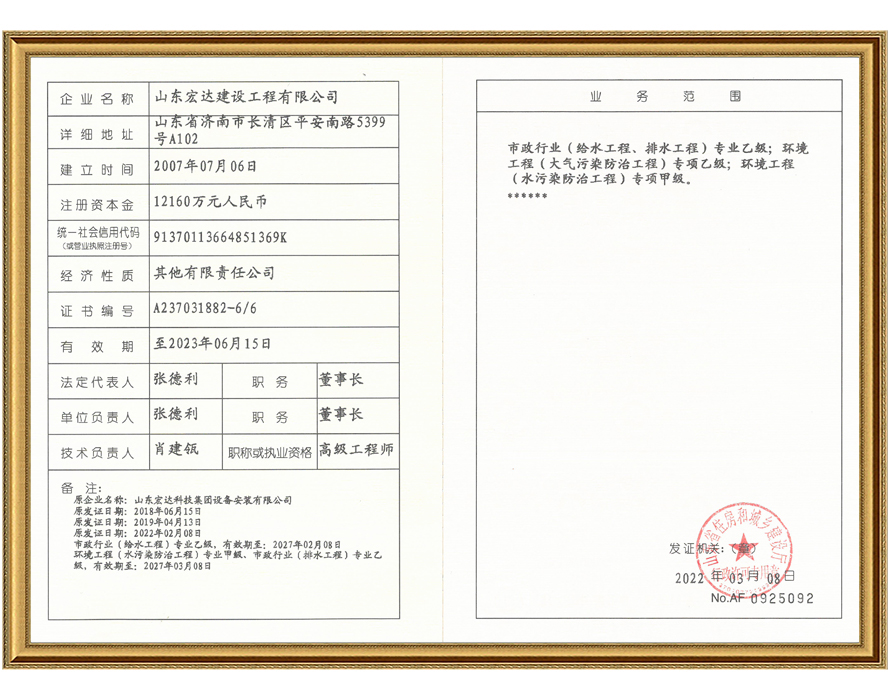 企业名称 山东宏达建设工程有限公司
详细地址 山东省济南市长清区平安南路5399
号A102
建立时间 2007年07月06日
注册资本金 12160万元人民币
统一社会信用代码
(或营业执照注册号) 91370113664851369K
经济性质 其他有限责任公司
证书编号 A237031882-6/6
有效期 至2023年06月15日
法定代表人 张德利 职务 董事长
单位负责人 张德利 职务 董事长
技术负责人 肖建瓴 职称或执业资格 高级工程师
备注:
原企业名称：山东宏达科技集团设备安装有限公司
原发证日期：2018年06月15日
原发证日期：2019年04月13日
原发证日期：2022年02月08日
市政行业（给水工程）专业乙级、有效期至：2027年02月08日
环境工程（水污染防治工程）专业甲级、市政行业（排水工程）专业乙
级，有效期至：2027年03月08日
业务范围
市政行业（给水工程、排水工程）专业乙级；环境
工程（大气污染防治工程）专项乙级；环境工程
（水污染防治工程）专项甲级。
******
山东省住房和城乡建设厅
发证机关：(章)
2022年03月08日
No.AF 0925092